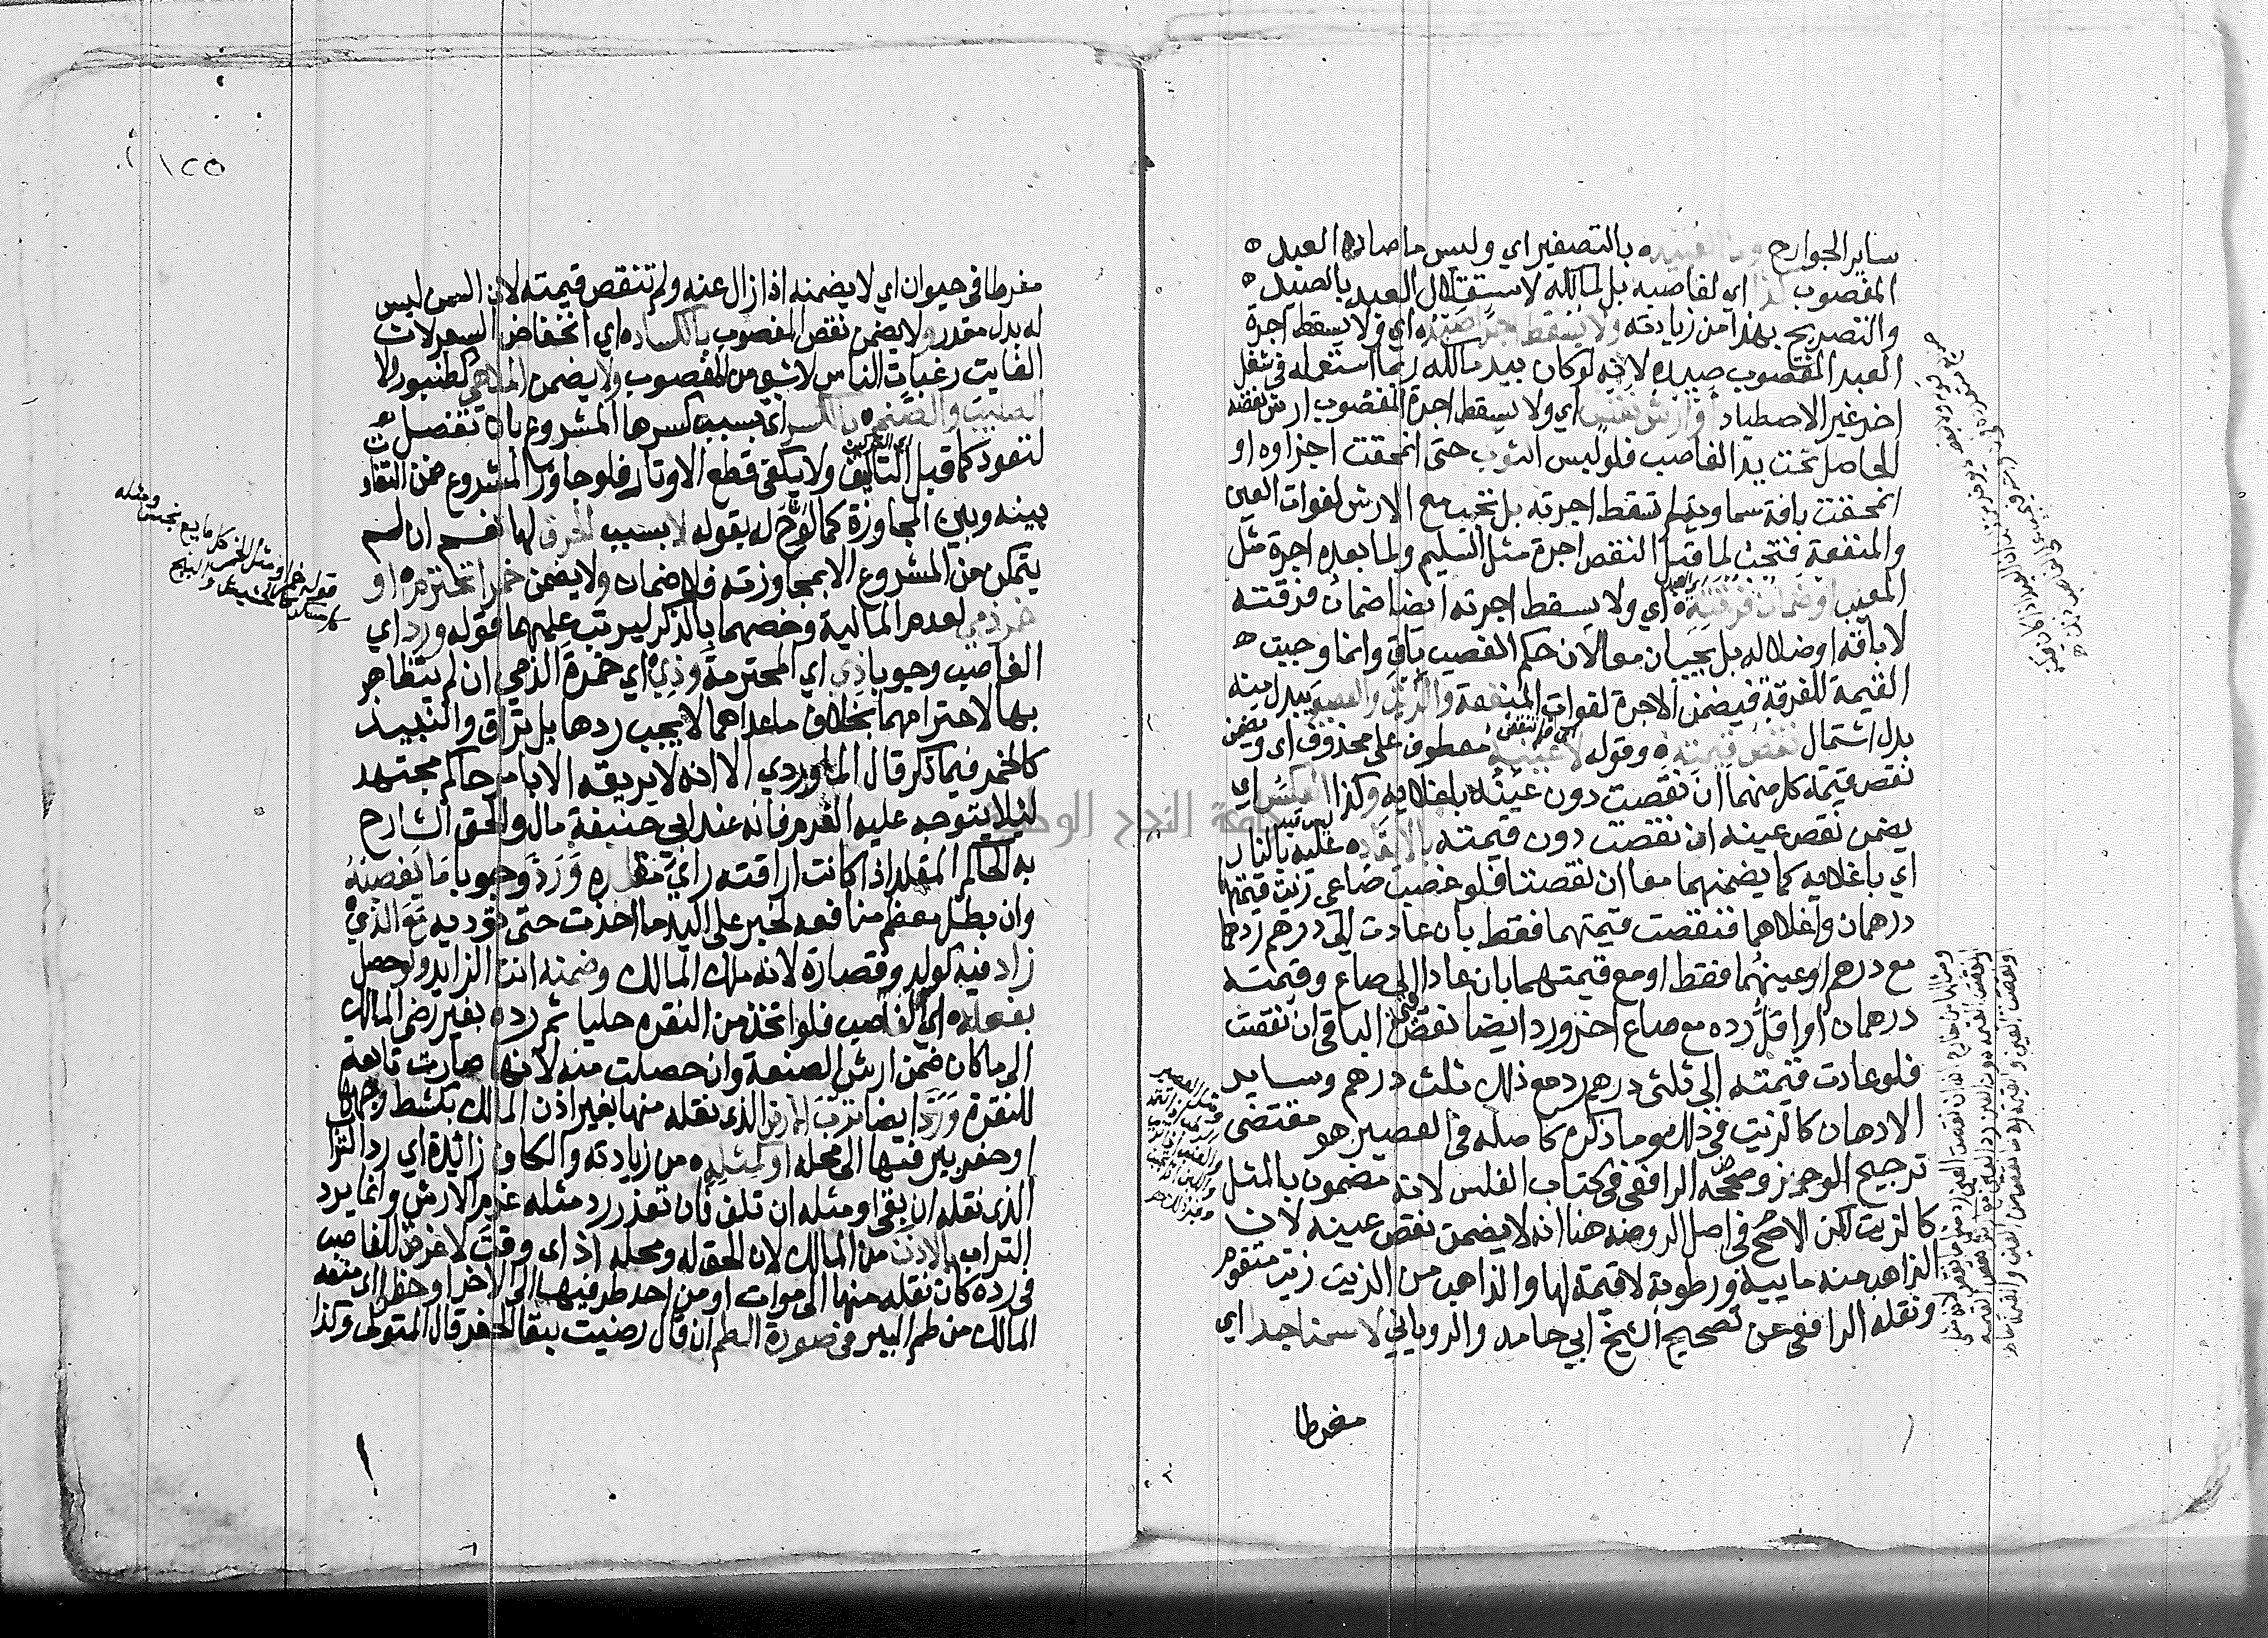 ساير الجوارح وما لعبيده بالتصغير اي وليس ما صاده العبد
المغصوب كذا اي لغاصبه بل لمالكه لاستقلال العبد بالصيد
والتصريح بهذا من زيادته ولا يسقط اجرا صيده اي فلا يسقط اجرة
العبد المغصوب صيده لانه لو كان بيد مالكه ربما استعمله في شغل
اخر غير الاصطياد او ارش نقص اي ولا يسقط اجرة المغصوب ارش نقصه
الحاصل تحت يد الغاصب فلو لبس الثوب حتى انمحقت اجزاوه او
انمحقت بافة سماوية لم تسقط اجرته بل تجب مع الارش لفوات العين
والمنفعة فتجب لما قبل النقص اجرة مثل السليم ولما بعده اجرة مثل
المعيب او ضمان فرقته اي ولا يسقط اجرته ايضا ضمان فرقته
لاباقه او ضلاله بل يجبان معا لان حكم الغصب باق وانما وجبت
القيمة للفرقة فيضمن الاجرة لفوات المنفعة والزيت والعصير يبدل منه
بدل اشتمال نقص قيمته وقوله لا عينه معطوف على محذوف اي ويضمن
نقص قيمة كل منهما ان نقصت دون عينه باغلايه وكذا العكس اي
يضمن نقص عينه ان نقصت دون قيمته بالايقاد عليه بالنار
اي باغلايه كما يضمنهما معا ان نقصتا فلو غصب صاعي زيت قيمتهما
درهمان واغلاهما فنقصت قيمتهما فقط بان عادت الى درهم ردهما
مع درهم او عينهما فقط او مع قيمتهما بان عادا الى صاع وقيمته
درهمان او اقل رده مع صاع اخر ورد ايضا نقص الباقي ان نقصت
فلو عادت قيمته الى ثلثي درهم رد مع ذلك ثلث درهم وساير
الادهان كالزيت في ذلك وما ذكره كاصله في العصير هو مقتضى
ترجيح الوجيز وصححه الرافعي في كتاب الفلس لانه مضمون بالمثل
كالزيت لكن الاصح في اصل الروضة هنا انه لا يضمن نقص عينه لان
الذاهب منه مايية ورطوبة لا قيمة لها والذاهب من الزيت زيت متقوم
ونقله الرافعي عن تصحيح الشيخ ابي حامد والروياني لا سمنا جدا اي
مفرطا
١٢٥
مفرطا في حيوان اي لا يضمنه اذا زال عنه ولم تنقص قيمته لان السمن ليس
له بدل مقدر ولا يضمن نقص المغصوب بالكساد اي انخفاض السعر لان
الفايت رغبات الناس لا شي من المغصوب ولا يضمن الملاهي كطنبور ولا
الصليب والصنم بالكسر اي بسبب كسرها المشروع بان تفصل
لتعود كما قبل التاليف ولا يكفي قطع الاوتار فلو جاوز المشروع ضمن التفاوت
بينه وبين المجاوزة كما لوح له بقوله لا بسبب الحرق لها نعم ان لم
يتمكن من المشروع الا بمجاوزته فلا ضمان ولا يضمن خمرا محترمة او
خمر ذمي لعدم المالية وخصهما بالذكر ليرتب عليهما قوله ورد اي
الغاصب وجوبا ذي اي المحترمة وذي اي خمرة الذمي ان لم يتظاهر
بها لاحترامهما بخلاف ما عداهما لا يجب ردها بل تراق والنبيذ
كالخمر فيما ذكر قال الماوردي الا انه لا يريقه الا بامر حاكم مجتهد
ليلا يتوجه عليه الغرم فانه عند ابي حنيفة مال والحق الشارح
به الحاكم المقلد اذا كانت اراقته راي مقلده ورد وجوبا ما يغصبه
وان بطل معظم منافعه لخبر على اليد ما اخذت حتى توديه مع الذي
زاد فيه كولد وقصارة لانه ملك المالك وضمنه انت الزايد ولو حصل
بفعله اي الغاصب فلو اتخذ من النقره حليا ثم رده بغير رضى المالك
الى ما كان ضمن ارش الصنعة وان حصلت منه لانها صارت تابعة
للنقرة ورد ايضا ترب الارض الذي نقله منها بغير اذن المالك بكشط وجهها
او حفر بير فيها الى محله او لمثله من زيادته والكاف زائدة اي رد الترا
الذي نقله ان بقي او مثله ان تلف فان تعذر رد مثله غرم الارش وانما يرد
التراب بالاذن من المالك لان الحق له ومحله اذا اي وقت لا غرض للغاصب
في رده كان نقله منها الى موات او من احد طرفيها الى الاخر او حظر اي منعه
المالك من طم البير في صورة الطم ان قال رضيت ببقا الحفر قال المتولي وكذا